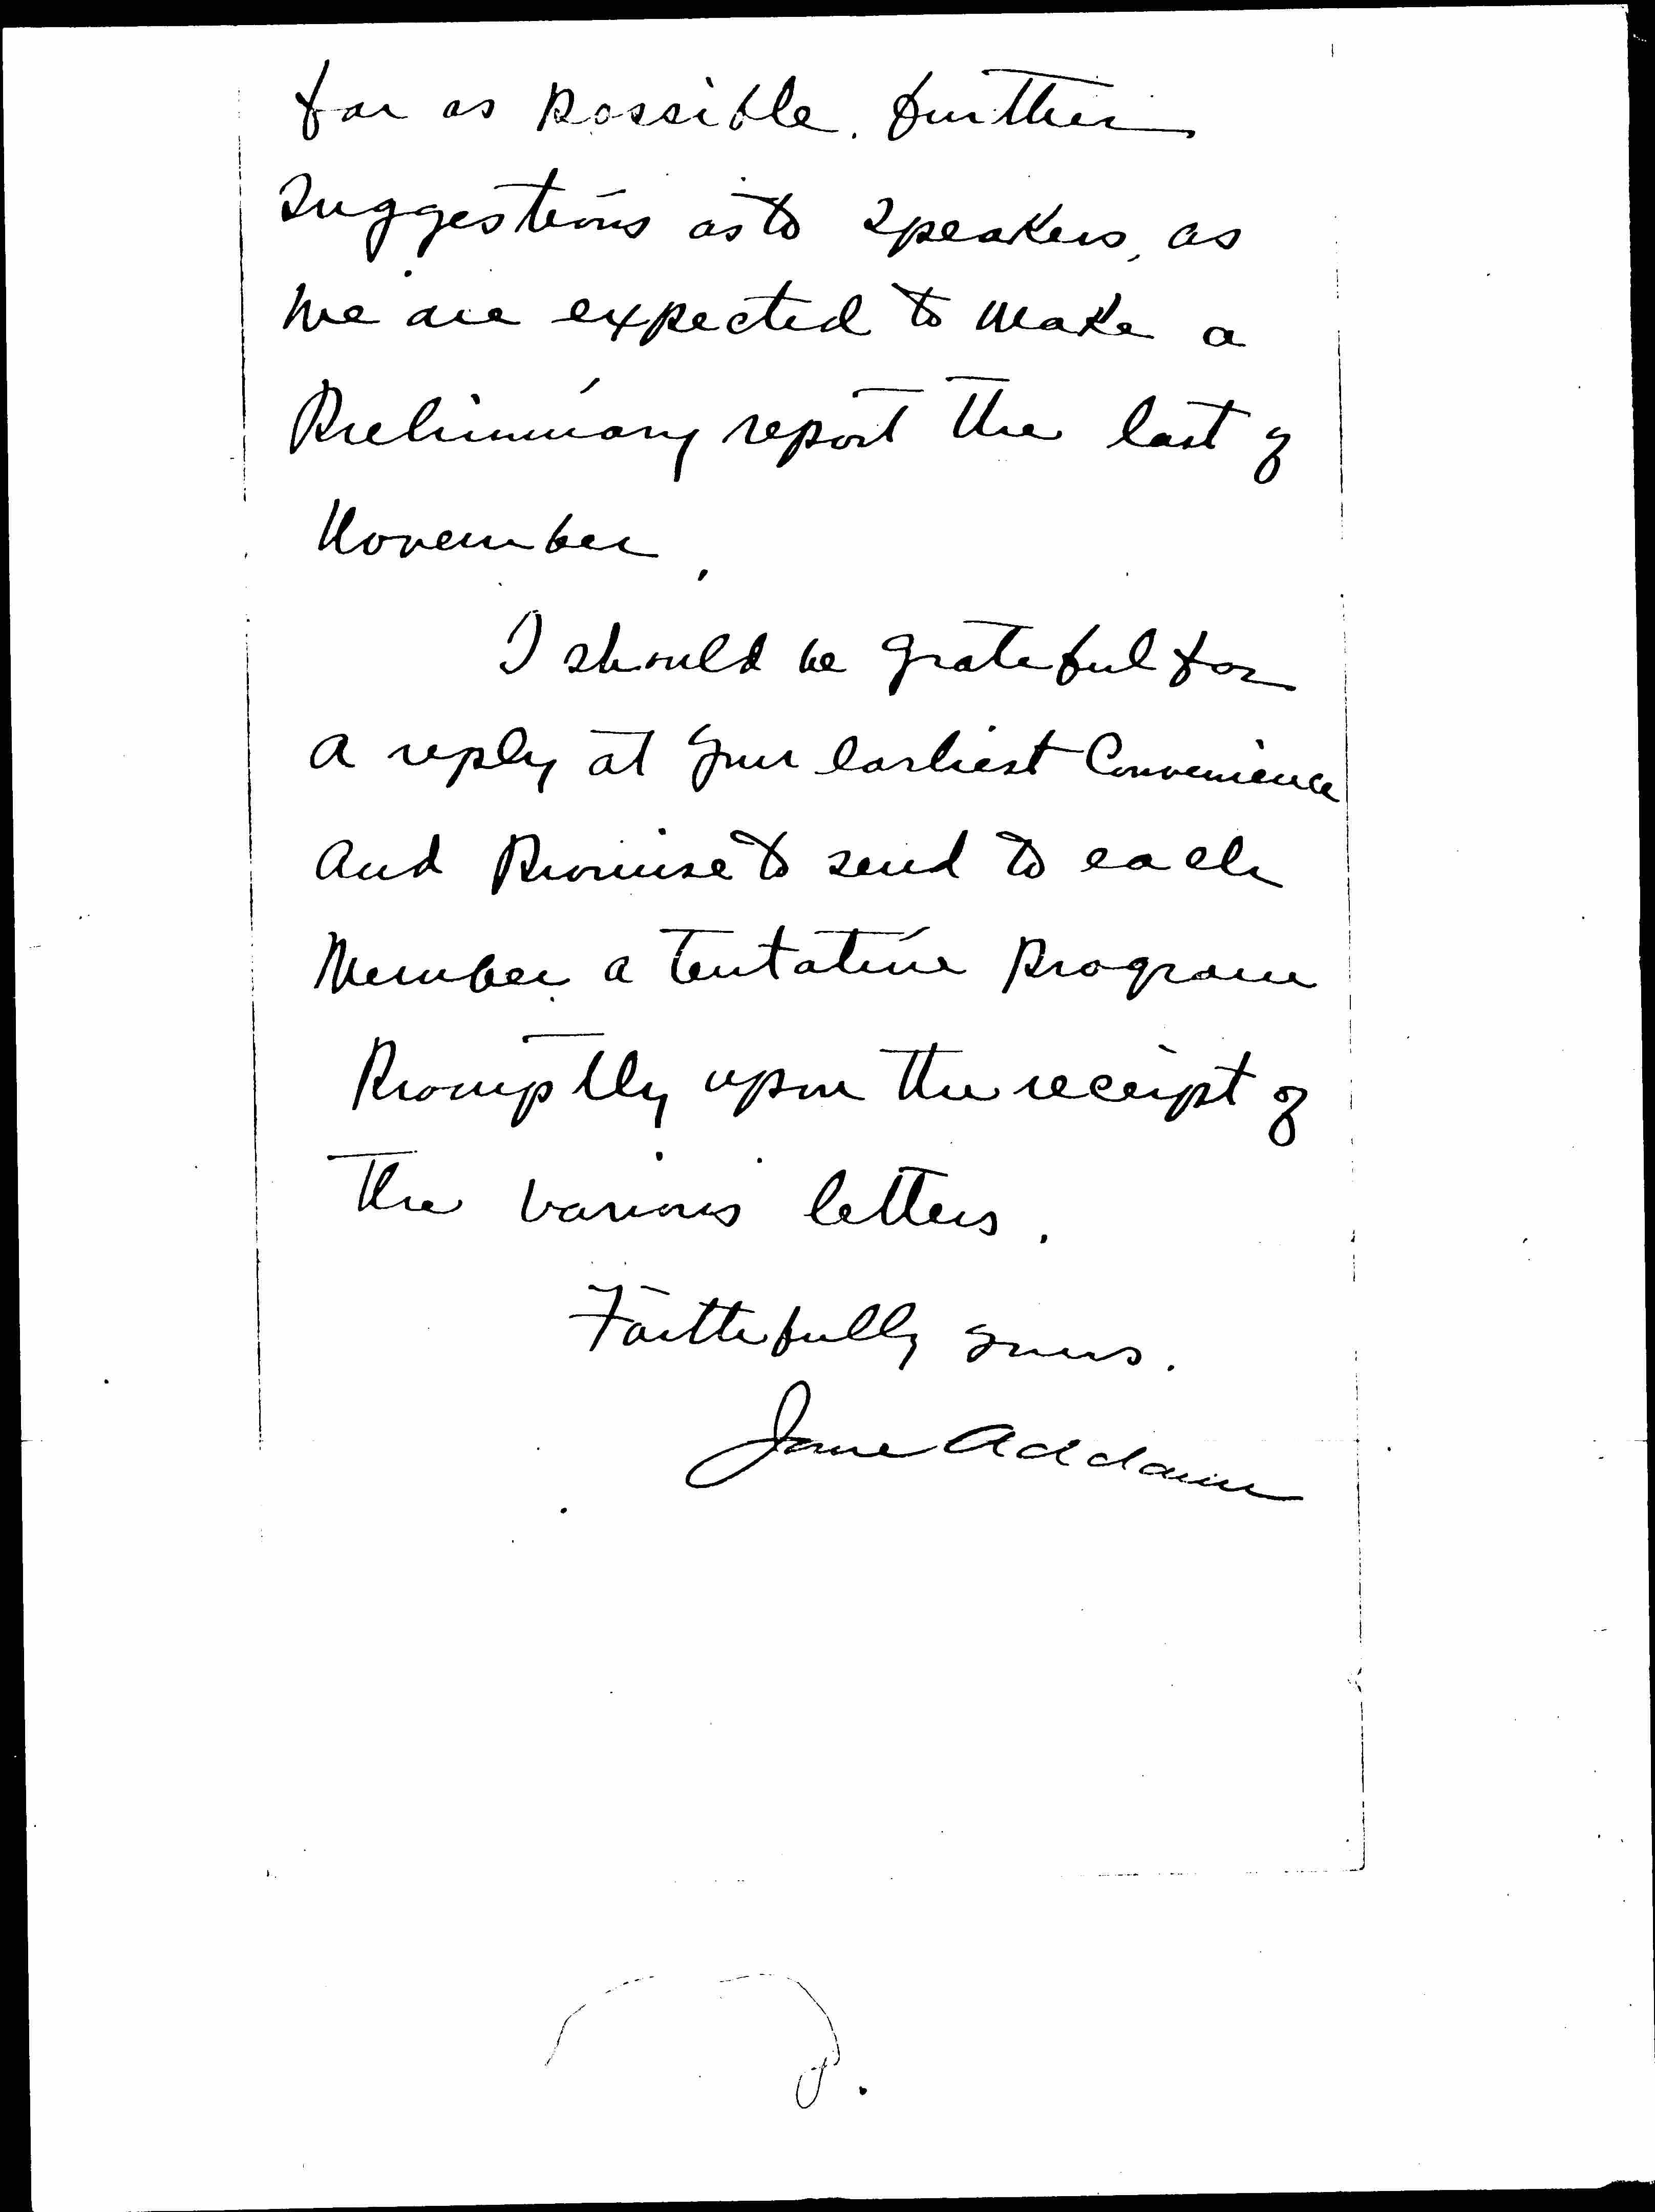 far as possible, further
suggestions as to speakers, as
we are expected to make a
preliminary report the last of
November.
I should be grateful for
a reply at your earliest convenience
and promise to send to each
member a tentative program
promptly upon the receipt of
the various letters.
Faithfully yours.
Jane Addams